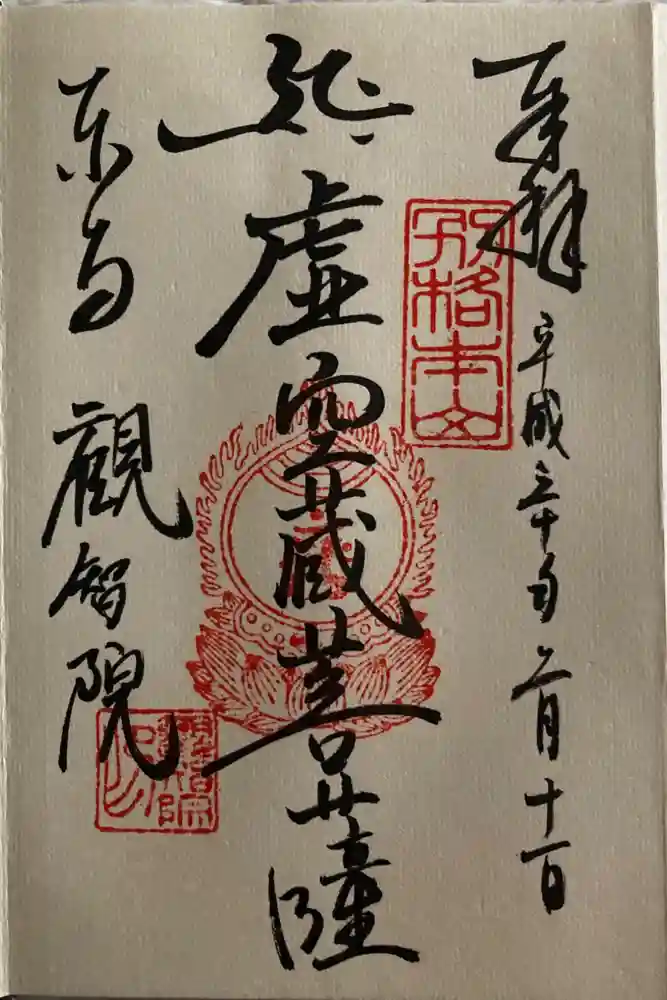 奉拝
平成三十年二月十一日
別格本山
虚空蔵菩薩
東寺
觀智院
觀智院印